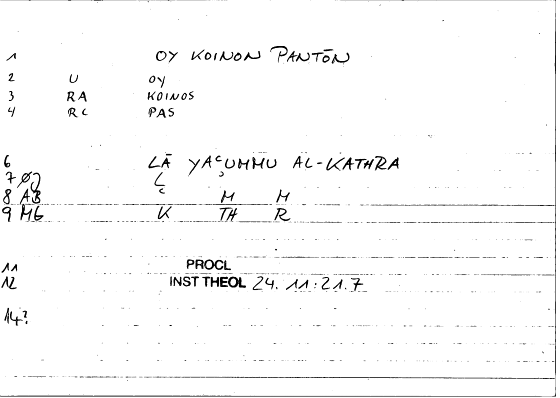 1 OY KOINON PANTŌN
2 U OY
3 RA KOINOS
4 RC PAS
6 LĀ YAʿUMMU AL-KATHRA
7
8 AB M M
9 MG K TH R
11 PROCL
12 INST THEOL 24. 11:21.7
14?